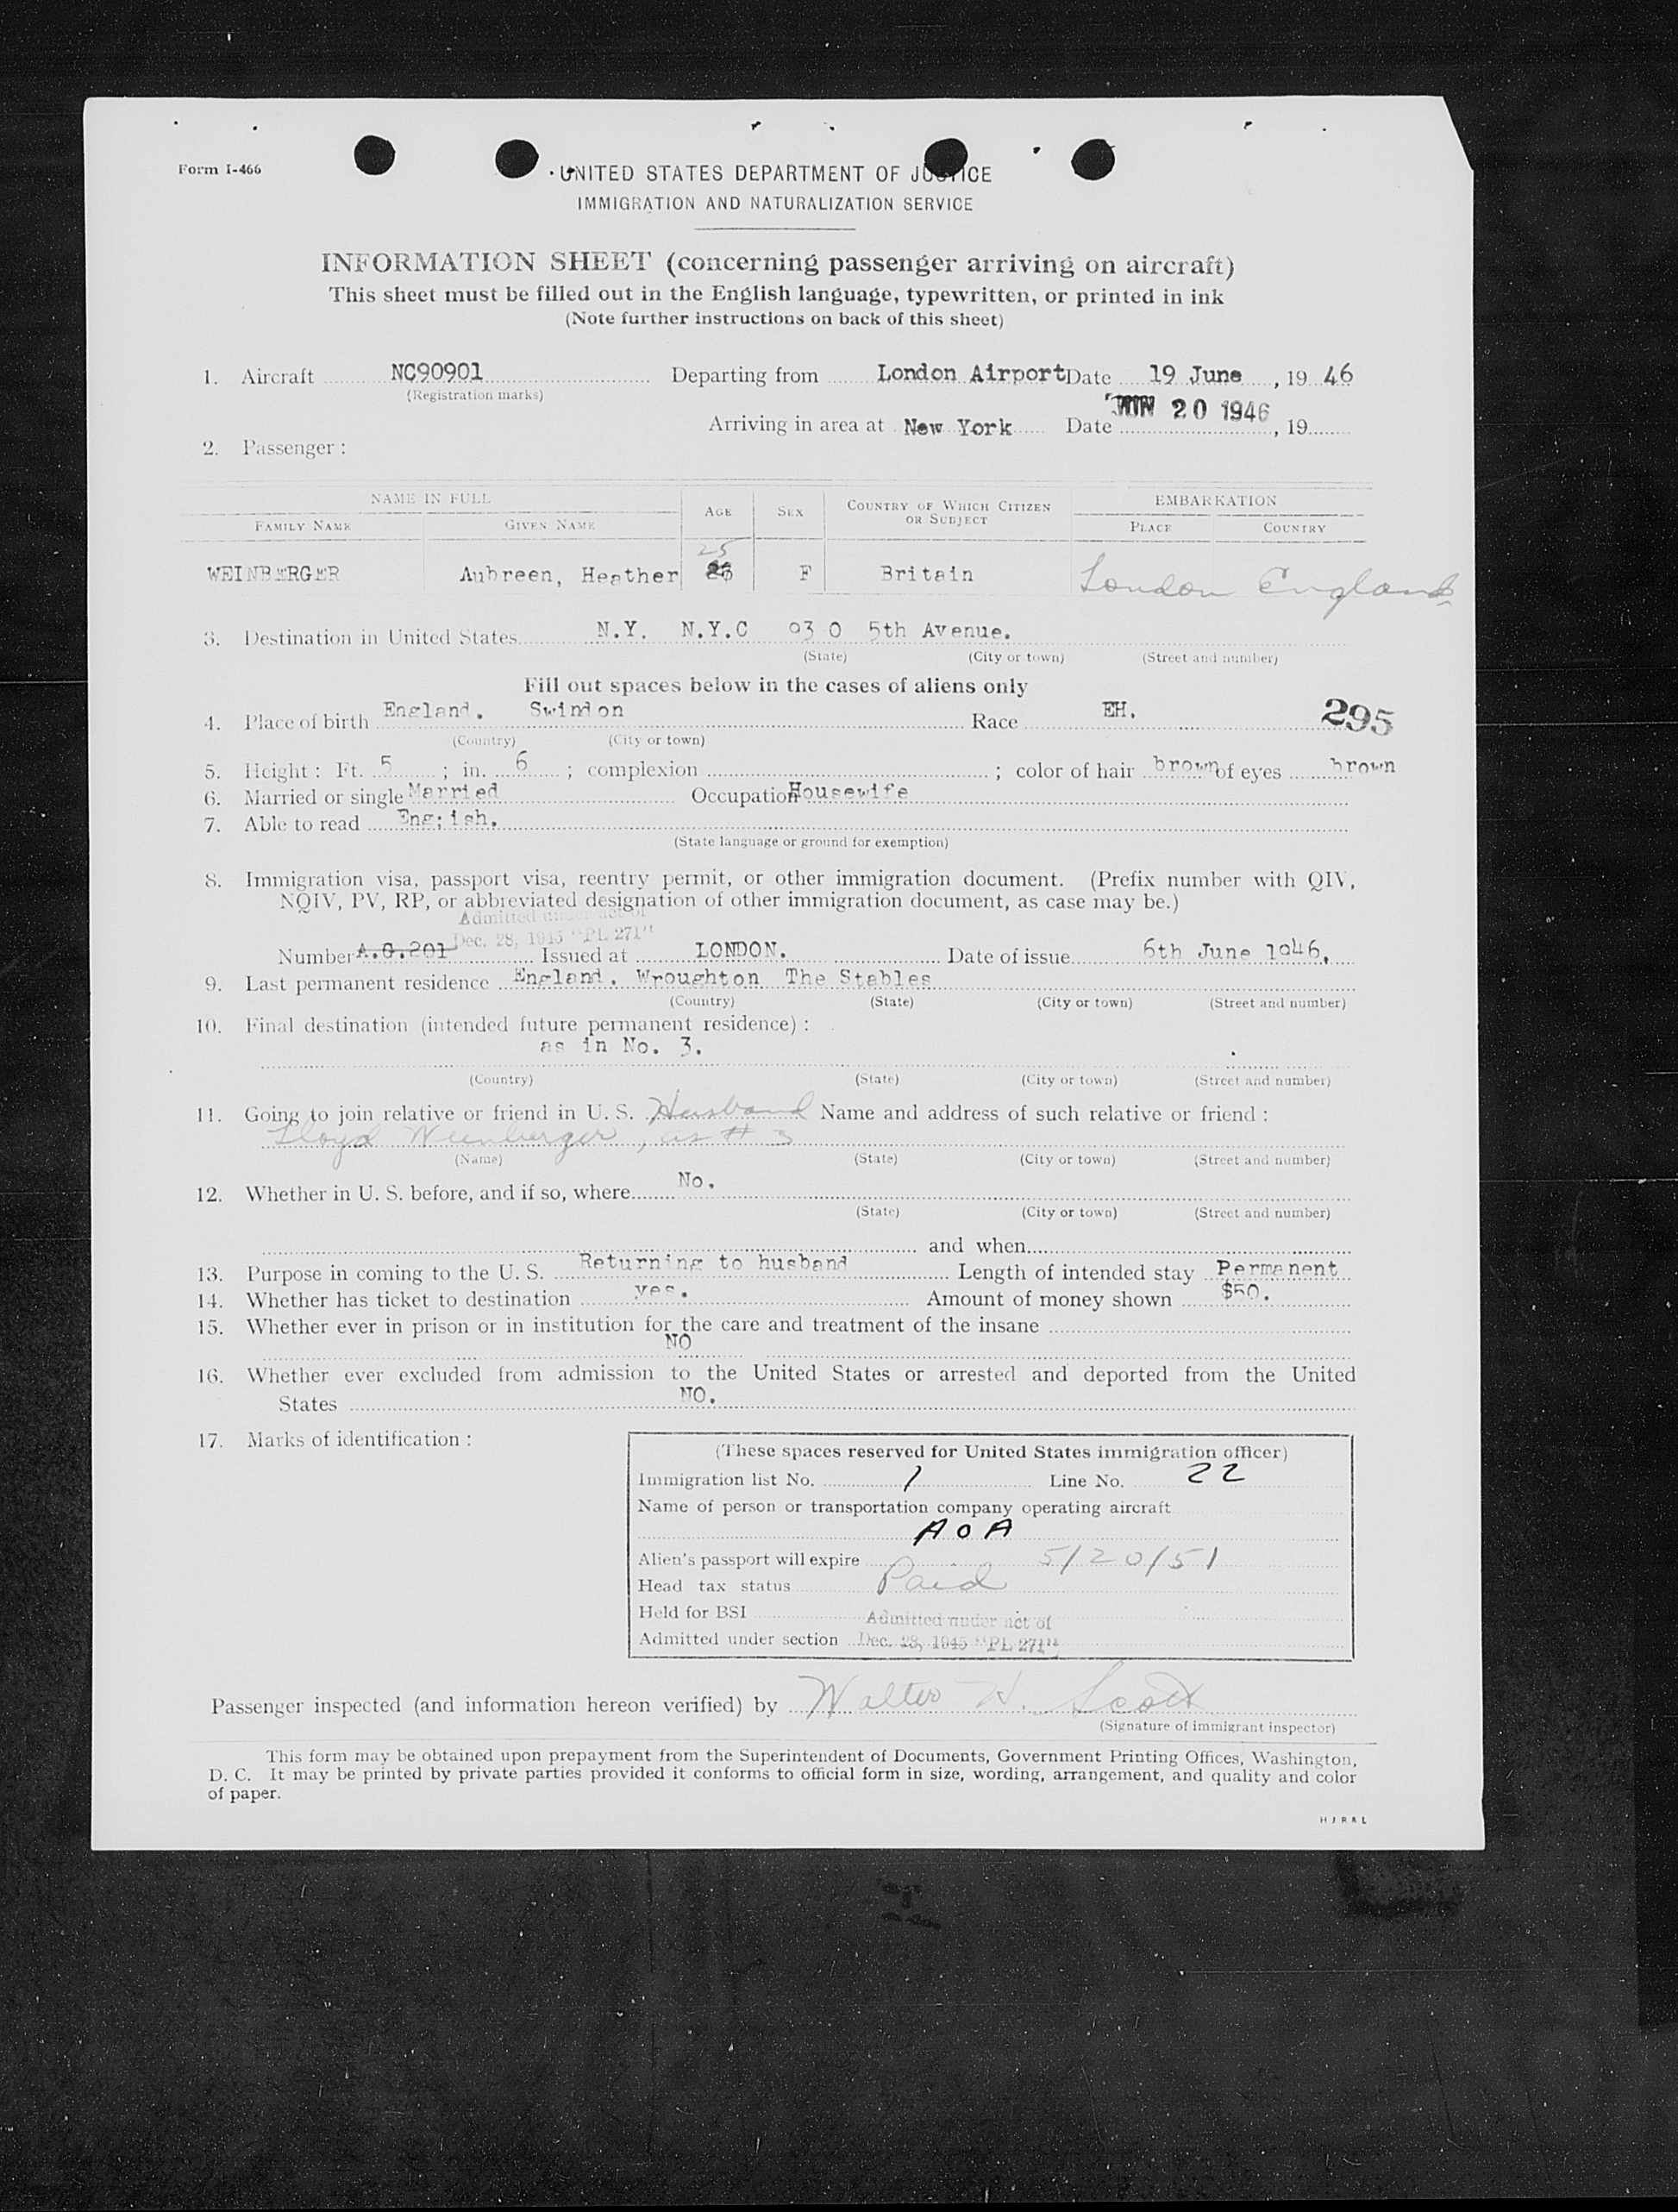 Form I-466
UNITED STATES DEPARTMENT OF JUSTICE
IMMIGRATION AND NATURALIZATION SERVICE
INFORMATION SHEET (concerning passenger arriving on aircraft)
This sheet must be filled out in the English language, typewritten, or printed in ink
(Note further instructions on back of this sheet)
1. Aircraft NC90901 Departing from London Airport Date 19 June, 19 46
(Registration marks)
Arriving in area at New York Date JUN 20 1946, 19
2. Passenger:
NAME IN FULL AGE SEX COUNTRY OF WHICH CITIZEN OR SUBJECT EMBARKATION
FAMILY NAME GIVEN NAME PLACE COUNTRY
25
WEINBERGER Aubreen, Heather F Britain London England
3. Destination in United States N.Y. N.Y.C 930 5th Avenue.
(State) (City or town) (Street and number)
Fill out spaces below in the cases of aliens only
4. Place of birth England. Swindon Race EH. 295
(Country) (City or town)
5. Height: Ft. 5; in. 6; complexion; color of hair brown of eyes brown
6. Married or single Married Occupation Housewife
7. Able to read Eng;ish.
(State language or ground for exemption)
8. Immigration visa, passport visa, reentry permit, or other immigration document. (Prefix number with QIV,
NQIV, PV, RP, or abbreviated designation of other immigration document, as case may be.)
Admitted under act of
Dec. 28, 1945 "PL 271"
Number A.G.201 Issued at LONDON. Date of issue 6th June 1946.
9. Last permanent residence England. Wroughton The Stables
(Country) (State) (City or town) (Street and number)
10. Final destination (intended future permanent residence):
as in No. 3.
(Country) (State) (City or town) (Street and number)
11. Going to join relative or friend in U. S. Husband Name and address of such relative or friend:
Lloyd Weinberger, as # 3
(Name) (State) (City or town) (Street and number)
12. Whether in U. S. before, and if so, where No.
(State) (City or town) (Street and number)
and when
13. Purpose in coming to the U. S. Returning to husband Length of intended stay Permanent
14. Whether has ticket to destination yes. Amount of money shown $50.
15. Whether ever in prison or in institution for the care and treatment of the insane
NO
16. Whether ever excluded from admission to the United States or arrested and deported from the United
States NO.
17. Marks of identification:
(These spaces reserved for United States immigration officer)
Immigration list No. 1 Line No. 22
Name of person or transportation company operating aircraft
AOA
Alien's passport will expire 5/20/51
Head tax status Paid
Held for BSI Admitted under act of
Admitted under section Dec. 28, 1945 "PL 271"
Passenger inspected (and information hereon verified) by Walter H. Scott
(Signature of immigrant inspector)
This form may be obtained upon prepayment from the Superintendent of Documents, Government Printing Offices, Washington,
D. C. It may be printed by private parties provided it conforms to official form in size, wording, arrangement, and quality and color
of paper.